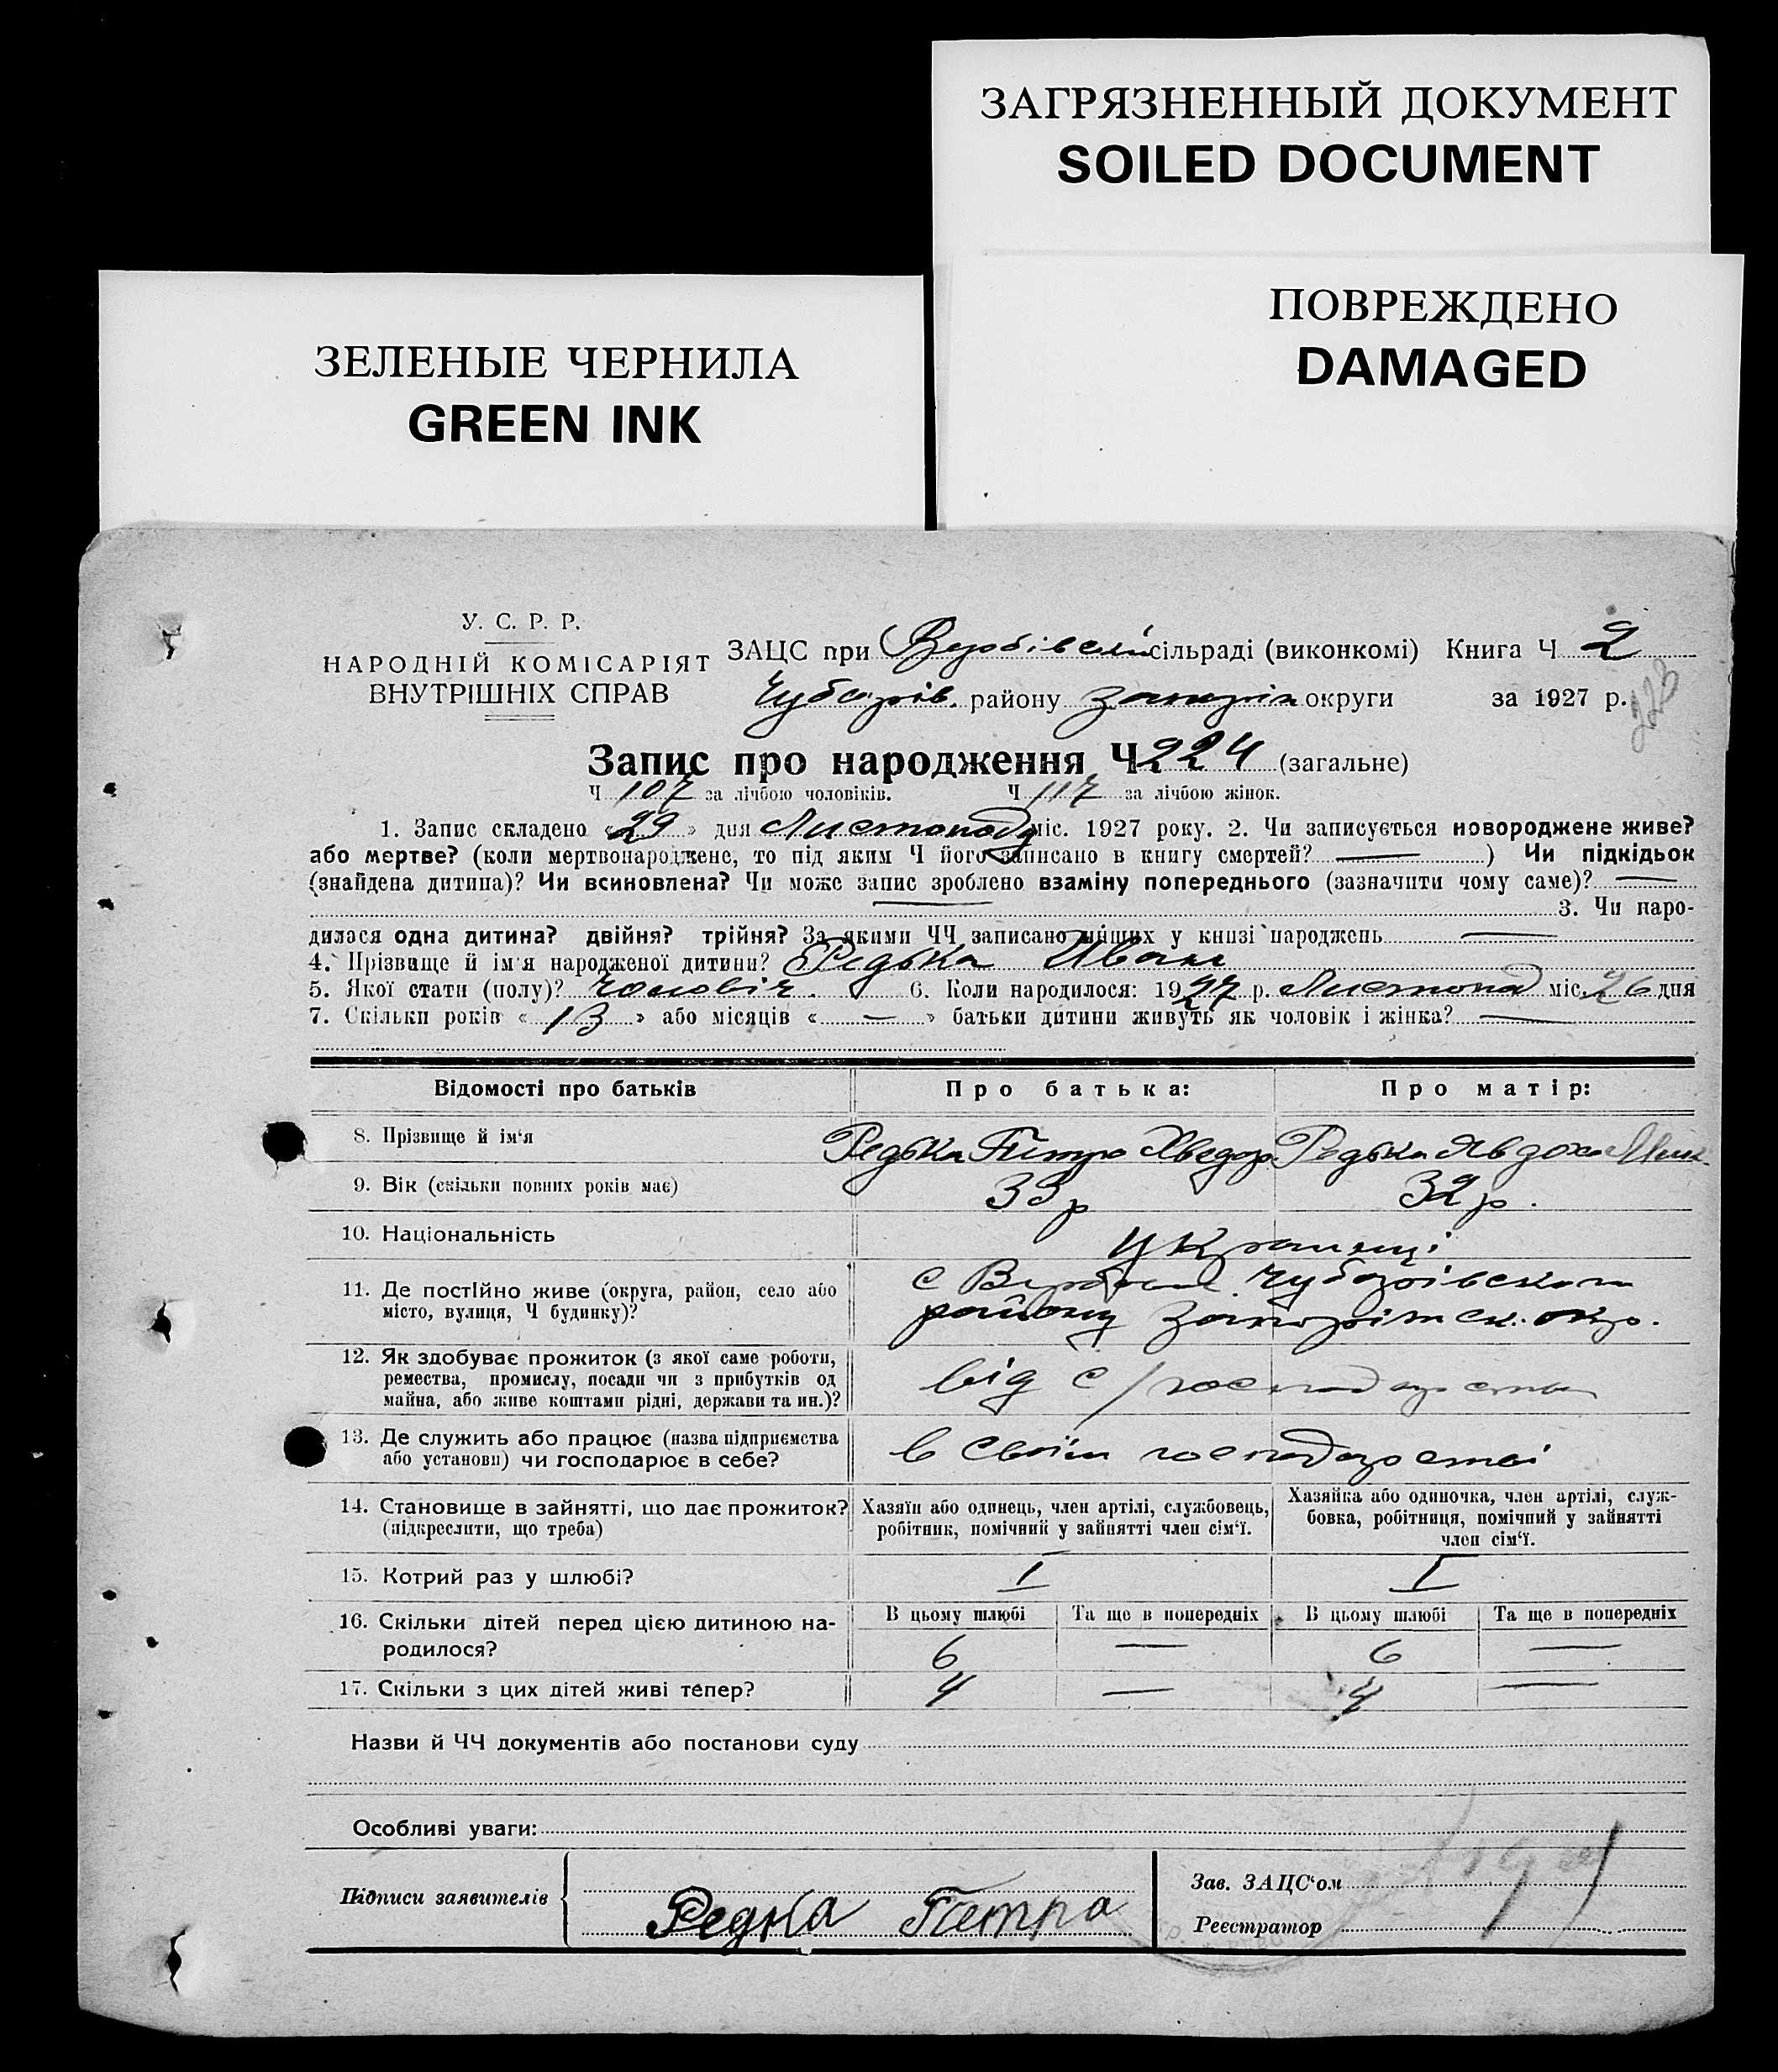 ЗАГРЯЗНЕННЫЙ ДОКУМЕНТ
SOILED DOCUMENT
ПОВРЕЖДЕНО
DAMAGED
ЗЕЛЕНЫЕ ЧЕРНИЛА
GREEN INK
У. С. Р. Р.
НАРОДНІЙ КОМІСАРІЯТ
ВНУТРІШНІХ СПРАВ
ЗАЦС при сільраді (виконкомі) Книга Ч 2
Чубарів. району округи за 1927 р.
223
Запис про народження Ч 224 (загальне)
Ч 107 за лічбою чоловіків. Ч 117 за лічбою жінок.
1. Запис складено «29» дня Листопаду міс. 1927 року. 2. Чи записується новороджене живе?
або мертве? (коли мертвонароджене, то під яким Ч його записано в книгу смертей? — ) Чи підкідьок
(знайдена дитина)? Чи всиновлена? Чи може запис зроблено взаміну попереднього (зазначити чому саме)? —
3. Чи наро-
дилася одна дитина? двійня? трійня? За якими ЧЧ записано инших у книзі народжень —
4. Прізвище й ім'я народженої дитини? Редька Иван
5. Якої стати (полу)? чоловіч. 6. Коли народилося: 1927 р. Листопад міс. 26 дня
7. Скільки років « 13 » або місяців « — » батьки дитини живуть як чоловік і жінка? —
Відомості про батьків Про батька: Про матір:
8. Прізвище й ім'я Редька Петро Хведор. Редька Явдоха
9. Вік (скільки повних років має) 33 р 32 р.
10. Національність Українці
11. Де постійно живе (округа, район, село або
місто, вулиця, Ч будинку)?
с Чубарівского
району окр.
12. Як здобуває прожиток (з якої саме роботи,
ремества, промислу, посади чи з прибутків од
майна, або живе коштами рідні, держави та ин.)?
від с/господарства
13. Де служить або працює (назва підприємства
або установи) чи господарює в себе?
в своїм господарстві
14. Становище в зайнятті, що дає прожиток?
(підкреслити, що треба)
Хазяїн або одинець, член артілі, службовець,
робітник, помічний у зайнятті член сім'ї.
Хазяйка або одиночка, член артілі, служ-
бовка, робітниця, помічний у зайнятті
член сім'ї.
15. Котрий раз у шлюбі? I I
16. Скільки дітей перед цією дитиною на-
родилося?
В цьому шлюбі Та ще в попередніх В цьому шлюбі Та ще в попередніх
6 — 6 —
17. Скільки з цих дітей живі тепер? 4 — 4 —
Назви й ЧЧ документів або постанови суду
Особливі уваги:
Підписи заявителів
Редка Петро
Зав. ЗАЦС'ом
Реєстратор